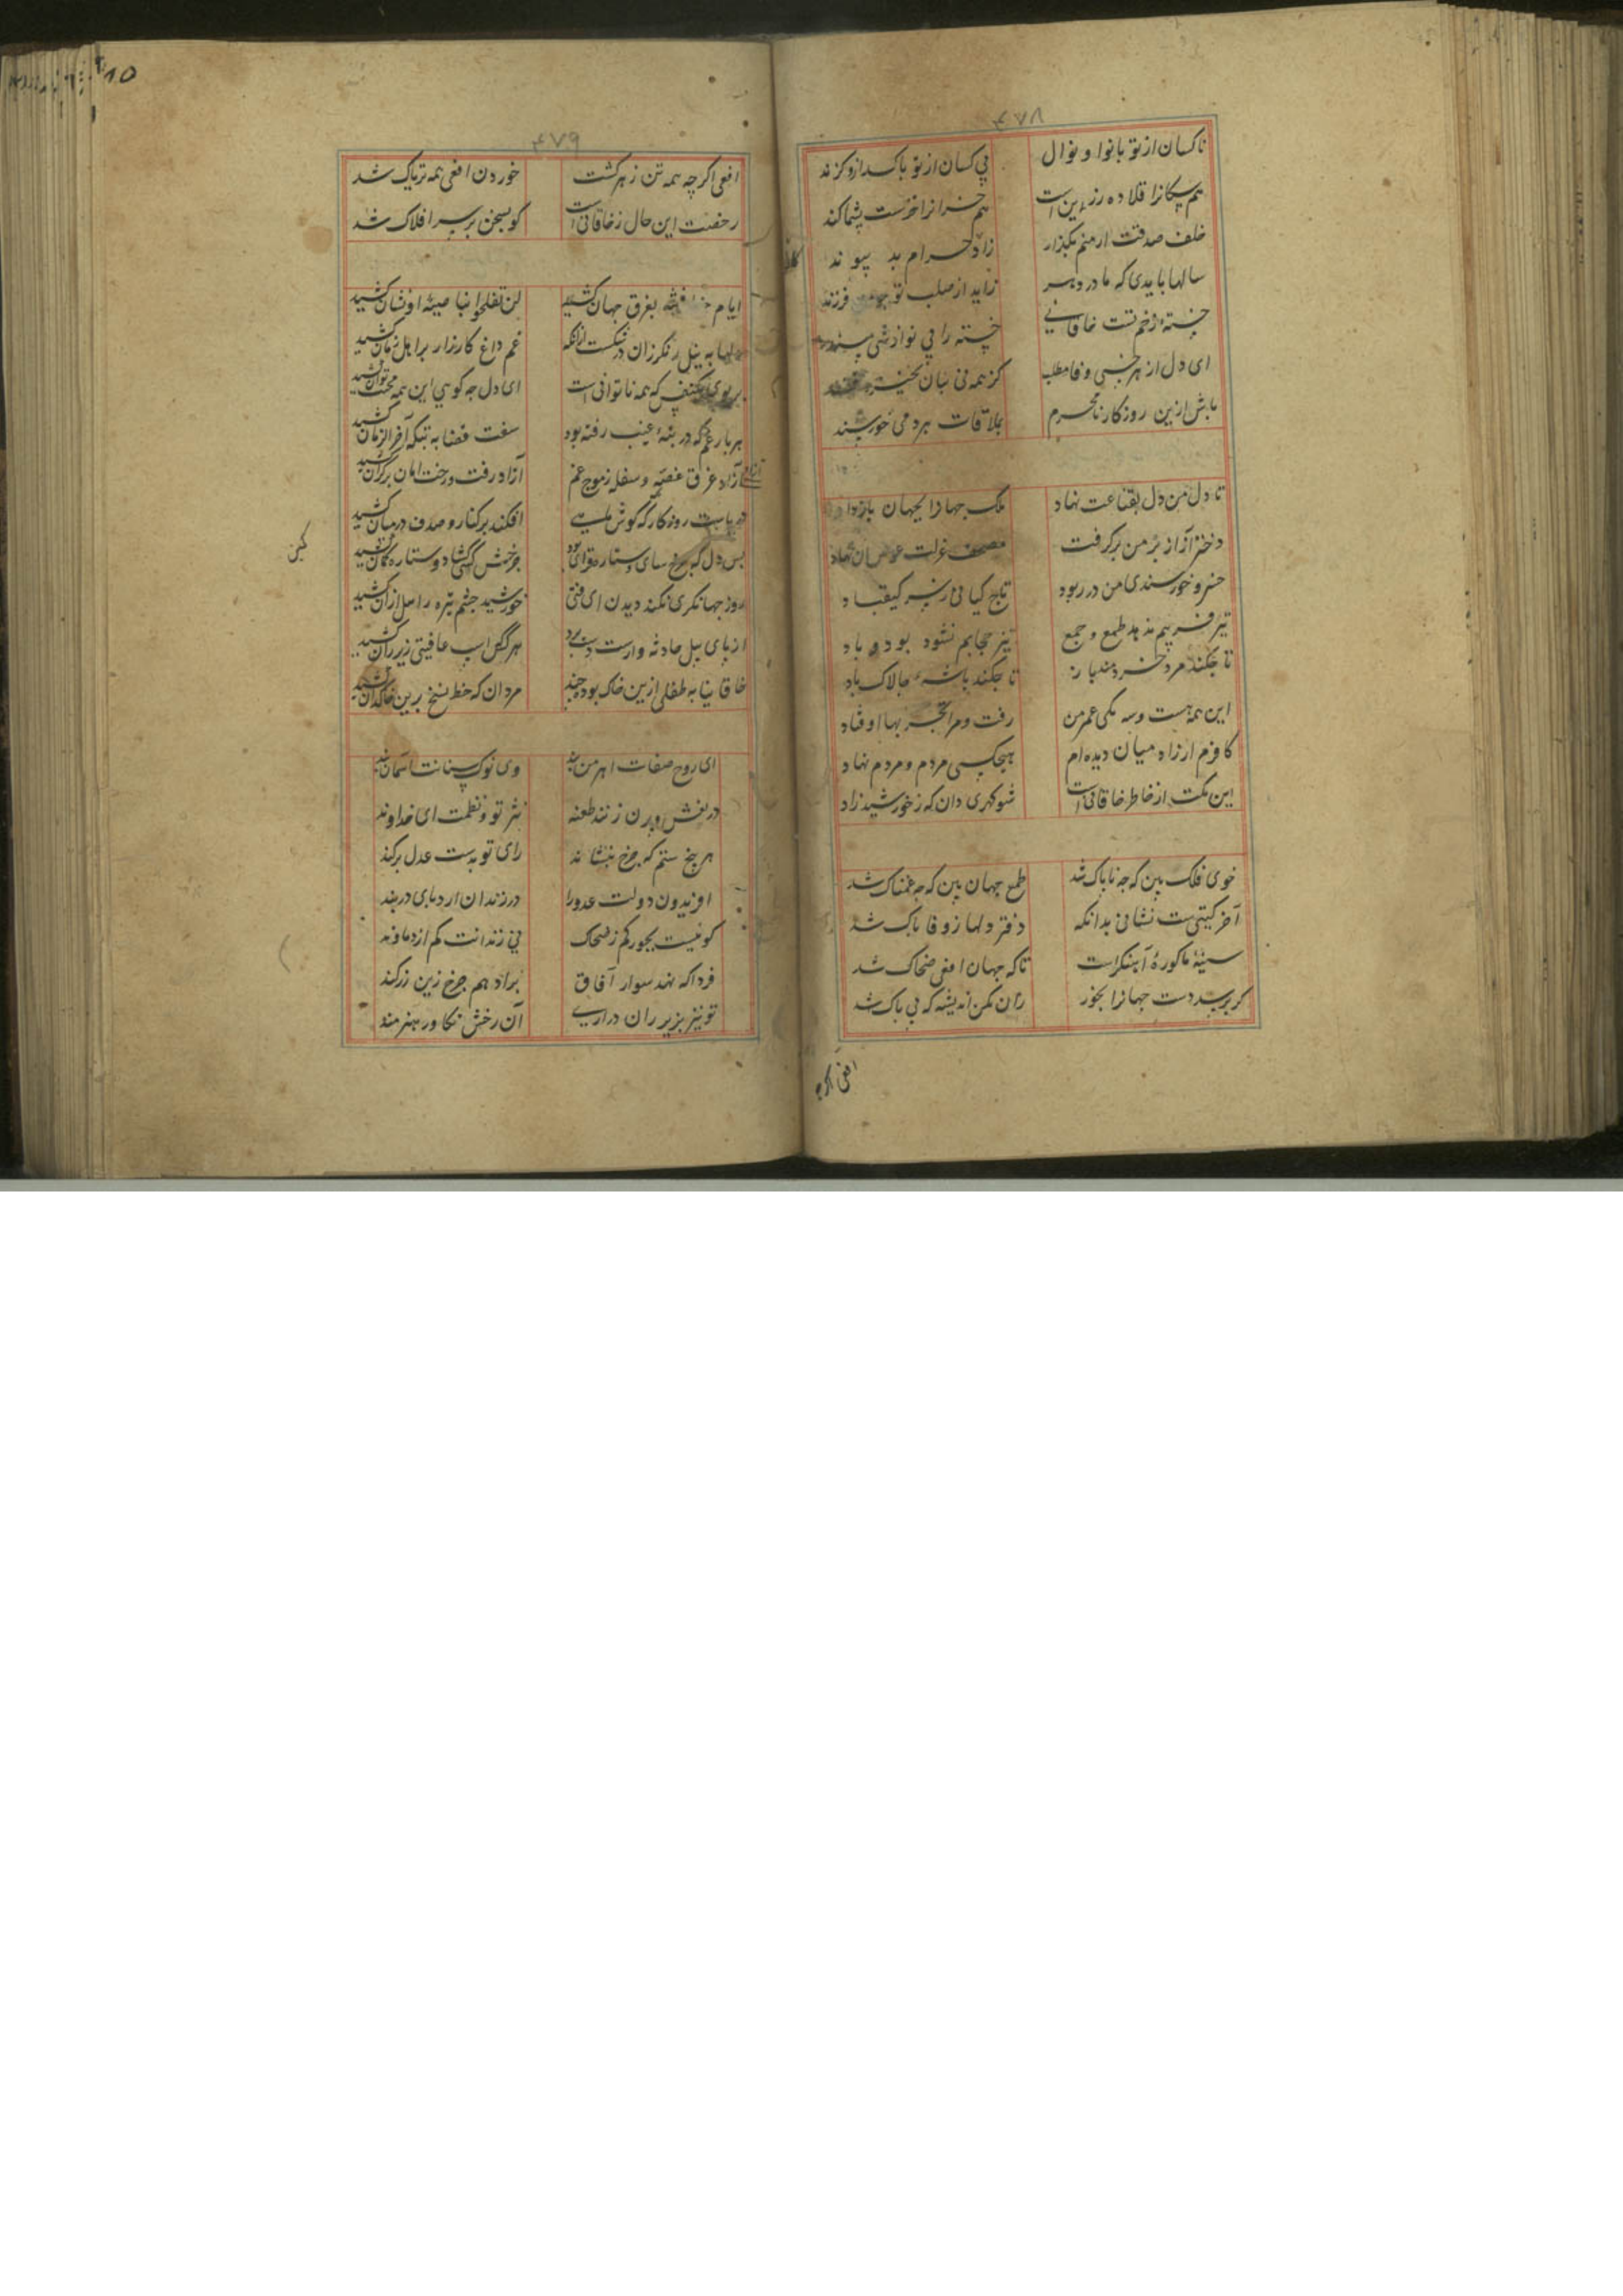 ۴۷۸
ناکسان از تو بانوا و نوال بی کسان از تو باکسد از و کزند
هم سکانرا قلاده زرین است هم خرانرا خرست پشماکند
خلف صدقت ار منم بکذار زاد حرام بد پیوند
سالها بایدی که مادر دهر زاید از صلب تو فرزند
خسته زخم تست خاقانی خسته را بی نوازشی مپسند
ای دل از هر خسی وفا مطلب کز همه نی ستان نخیزد قند
باش ازین روزکار نامحرم بملاقات مردمی خورسند
تا دل من دل بقناعت نهاد ملک جهانرا بجهان باز داد
دفتر آز از بر من برکرفت مصحف عزلت عوض آن نهاد
خسرو خورسندی من در ربود تاج کیانی ز سر کیقباد
تیز فریبم ندهد طمع و جمع نیز حجابم نشود بود و باد
تا چکند مرد خردمند باز تا چکند باشه چالاک باد
این همه هست و سه یکی عمر من رفت و مرا تجربها اوفتاد
کافرم ار زاد میان دیده ام هیچکسی مردم و مردم نهاد
این نکت از خاطر خاقانی است شو کهری دان که ز خورشید زاد
خوی فلک بین که چه ناپاک شد طمع جهان بین که چه غمناک شد
آخر کیتی ست نشانی بدانکه دفتر دلها ز وفا پاک شد
سینه ما کوره آهنکراست تا که جهان افعی ضحاک شد
کر برسد دست جهانرا بخور زان مکن اندیشه که بی باک شد
افعی اکرچه
۴۷۹
افعی اکر چه همه تن زهر کشت خوردن افعی همه تریاک شد
رخصت این حال ز خاقانی است کو بسخن بر سر افلاک شد
ایام بفرق جهان کشید لن تفلحوا بناصیه او نشان کشید
دلها به نیل رنکرزان در شکست ازانکه غم داغ کارزار بر اهل زمان کشید
بر بوی یکنفس که همه ناتوانی است ای دل چه کویی این همه محنت توان کشید
هر بار غم که در بنه غیب رفته بود سفت قضا به تنکه آخر الزمان کشید
آزاد غرق غصه و سفله ز موج غم آزاد رفت و رخت امان بر کران کشید
دریاست روزکار که کوش ملیی افکند بر کنار و صدف در میان کشید
بس دل که چرخ سای و ستاره نوای بود چرخش کشاد و ستاره کمان کشید
روز جهانکری نکند دیدن ای فتی خورشید چشم تیره را میل ازان کشید
از پای پیل حادثه وارست هر کس اسب عافیتی زیر ران کشید
خاقانیا به طفلی ازین خاک بود چند مردان که خط نسخ برین خاکدان کشید
کین
ای روح صفات اهرمن بند وی نوک سنانت آسمان رند
در نعش و پرن زنند طعنه نثر تو و نظمت ای خداوند
هر بیخ ستم که چرخ بنشاند رای تو بدست عدل برکند
افریدون دولت عدورا در زندان اژدهای دربند
کو نیست بجور کم ز ضحاک نی زندانت کم از دماوند
فرداکه نهد سوار آفاق براد هم چرخ زین زرکند
تو نیز بزیر ران دراری آن رخش تکاور هنرمند